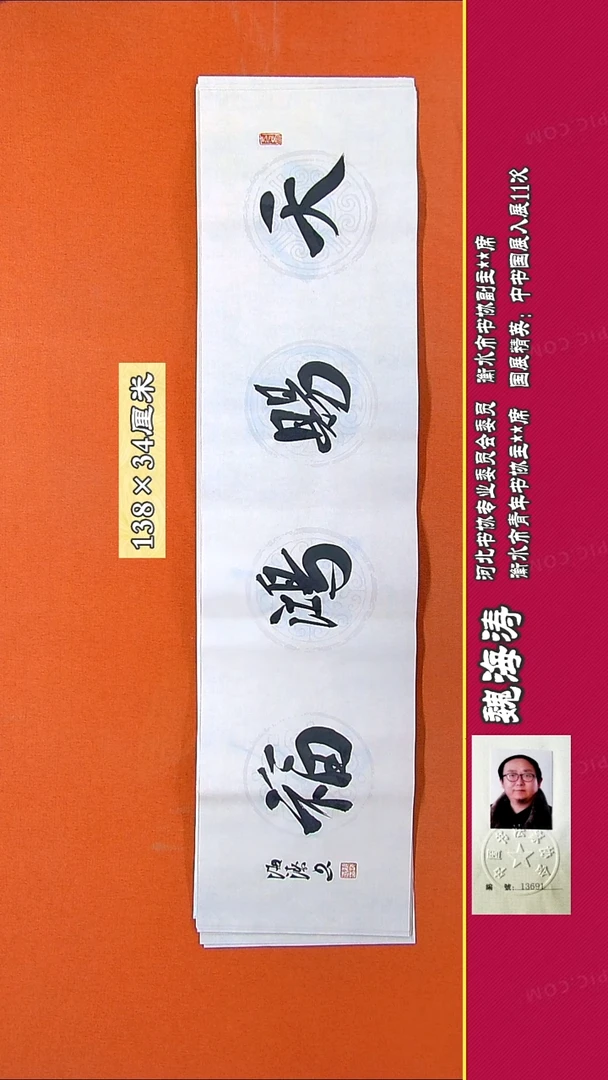 138×34厘米
天赐鸿福
海涛
魏海涛
河北书协专业委员会委员 衡水市书协副主**席
衡水市青年书协主**席 国展精英：中书国展入展11次
编 号: 13691
PIC.COM
PIC.COM
PIC.COM
PIC.COM
PIC.COM